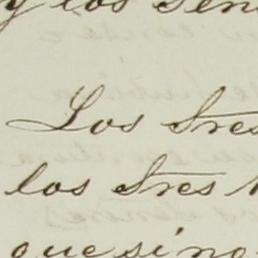 y los Seño
Los Sres
los Sres
que si no